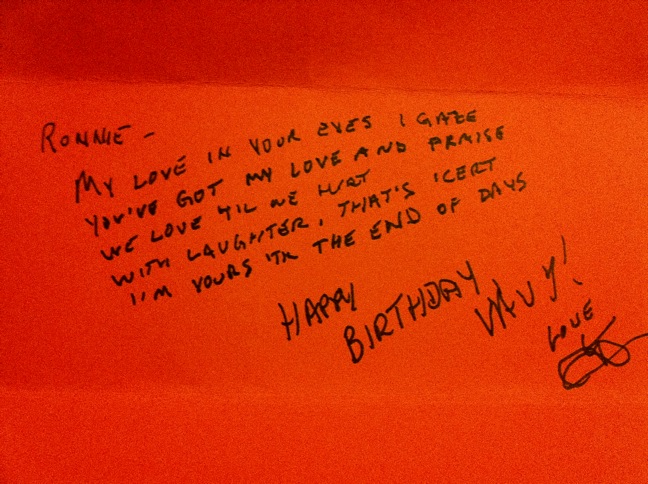 RONNIE -
MY LOVE IN YOUR EYES I GAZE
YOU'VE GOT MY LOVE AND PRAISE
WE LOVE 'TIL WE HURT
WITH LAUGHTER, THAT'S 'CERT
I'M YOURS 'TIL THE END OF DAYS
HAPPY
BIRTHDAY
LOVE